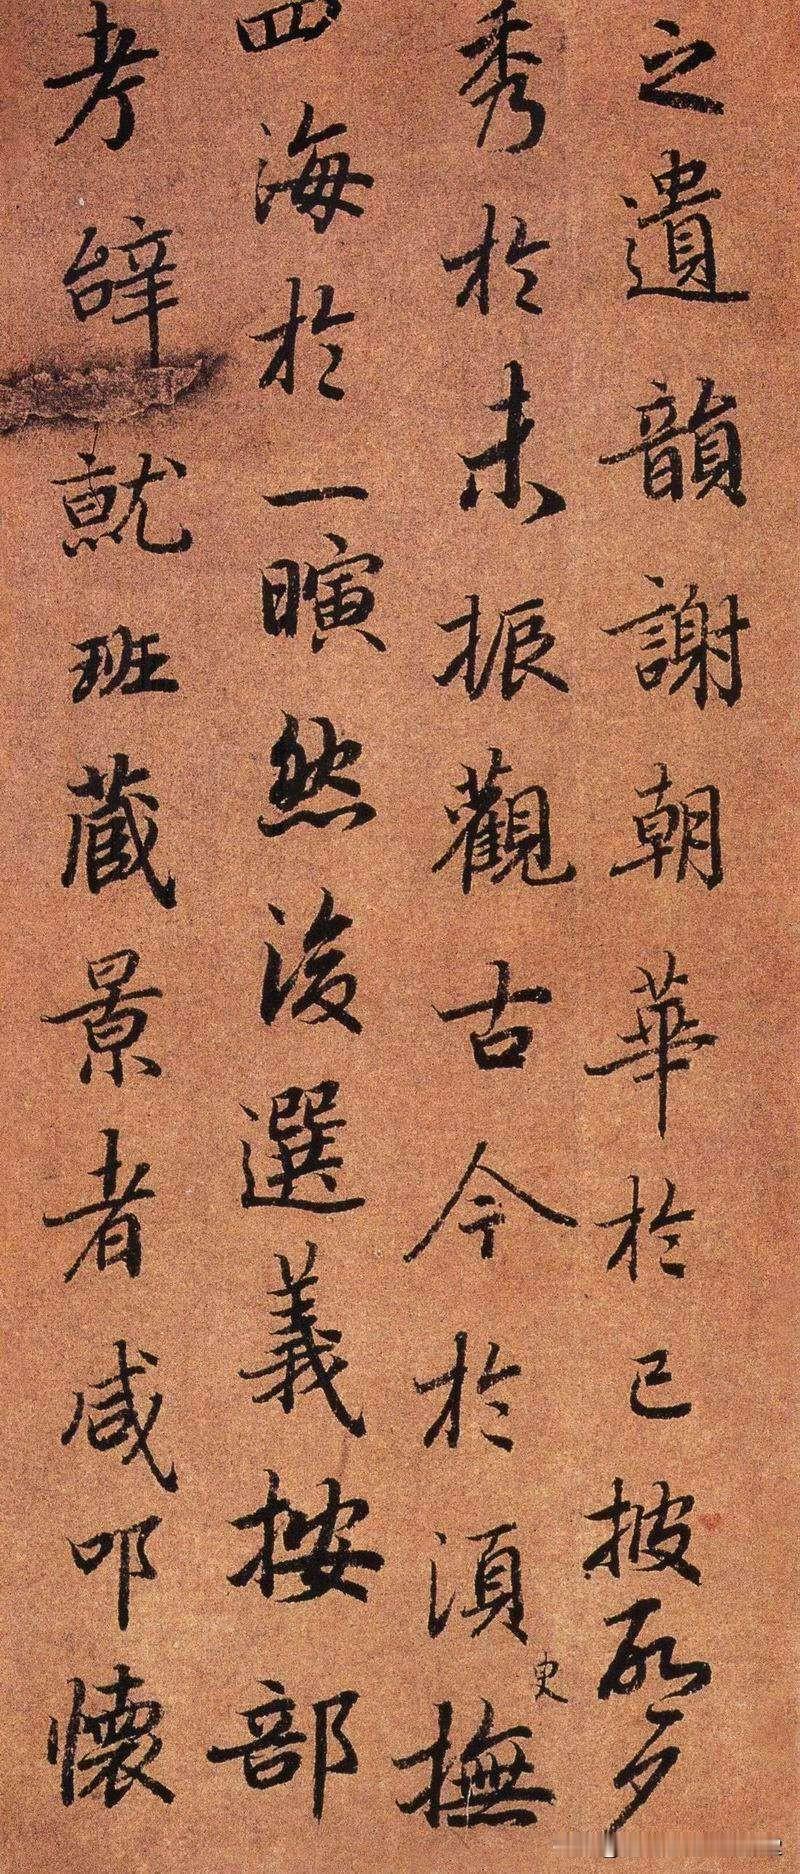 之遺韻謝朝華於已披啓夕
秀於未振觀古今於湏臾撫
四海於一瞚然後選義按部
考辝就班藏景者咸叩懷